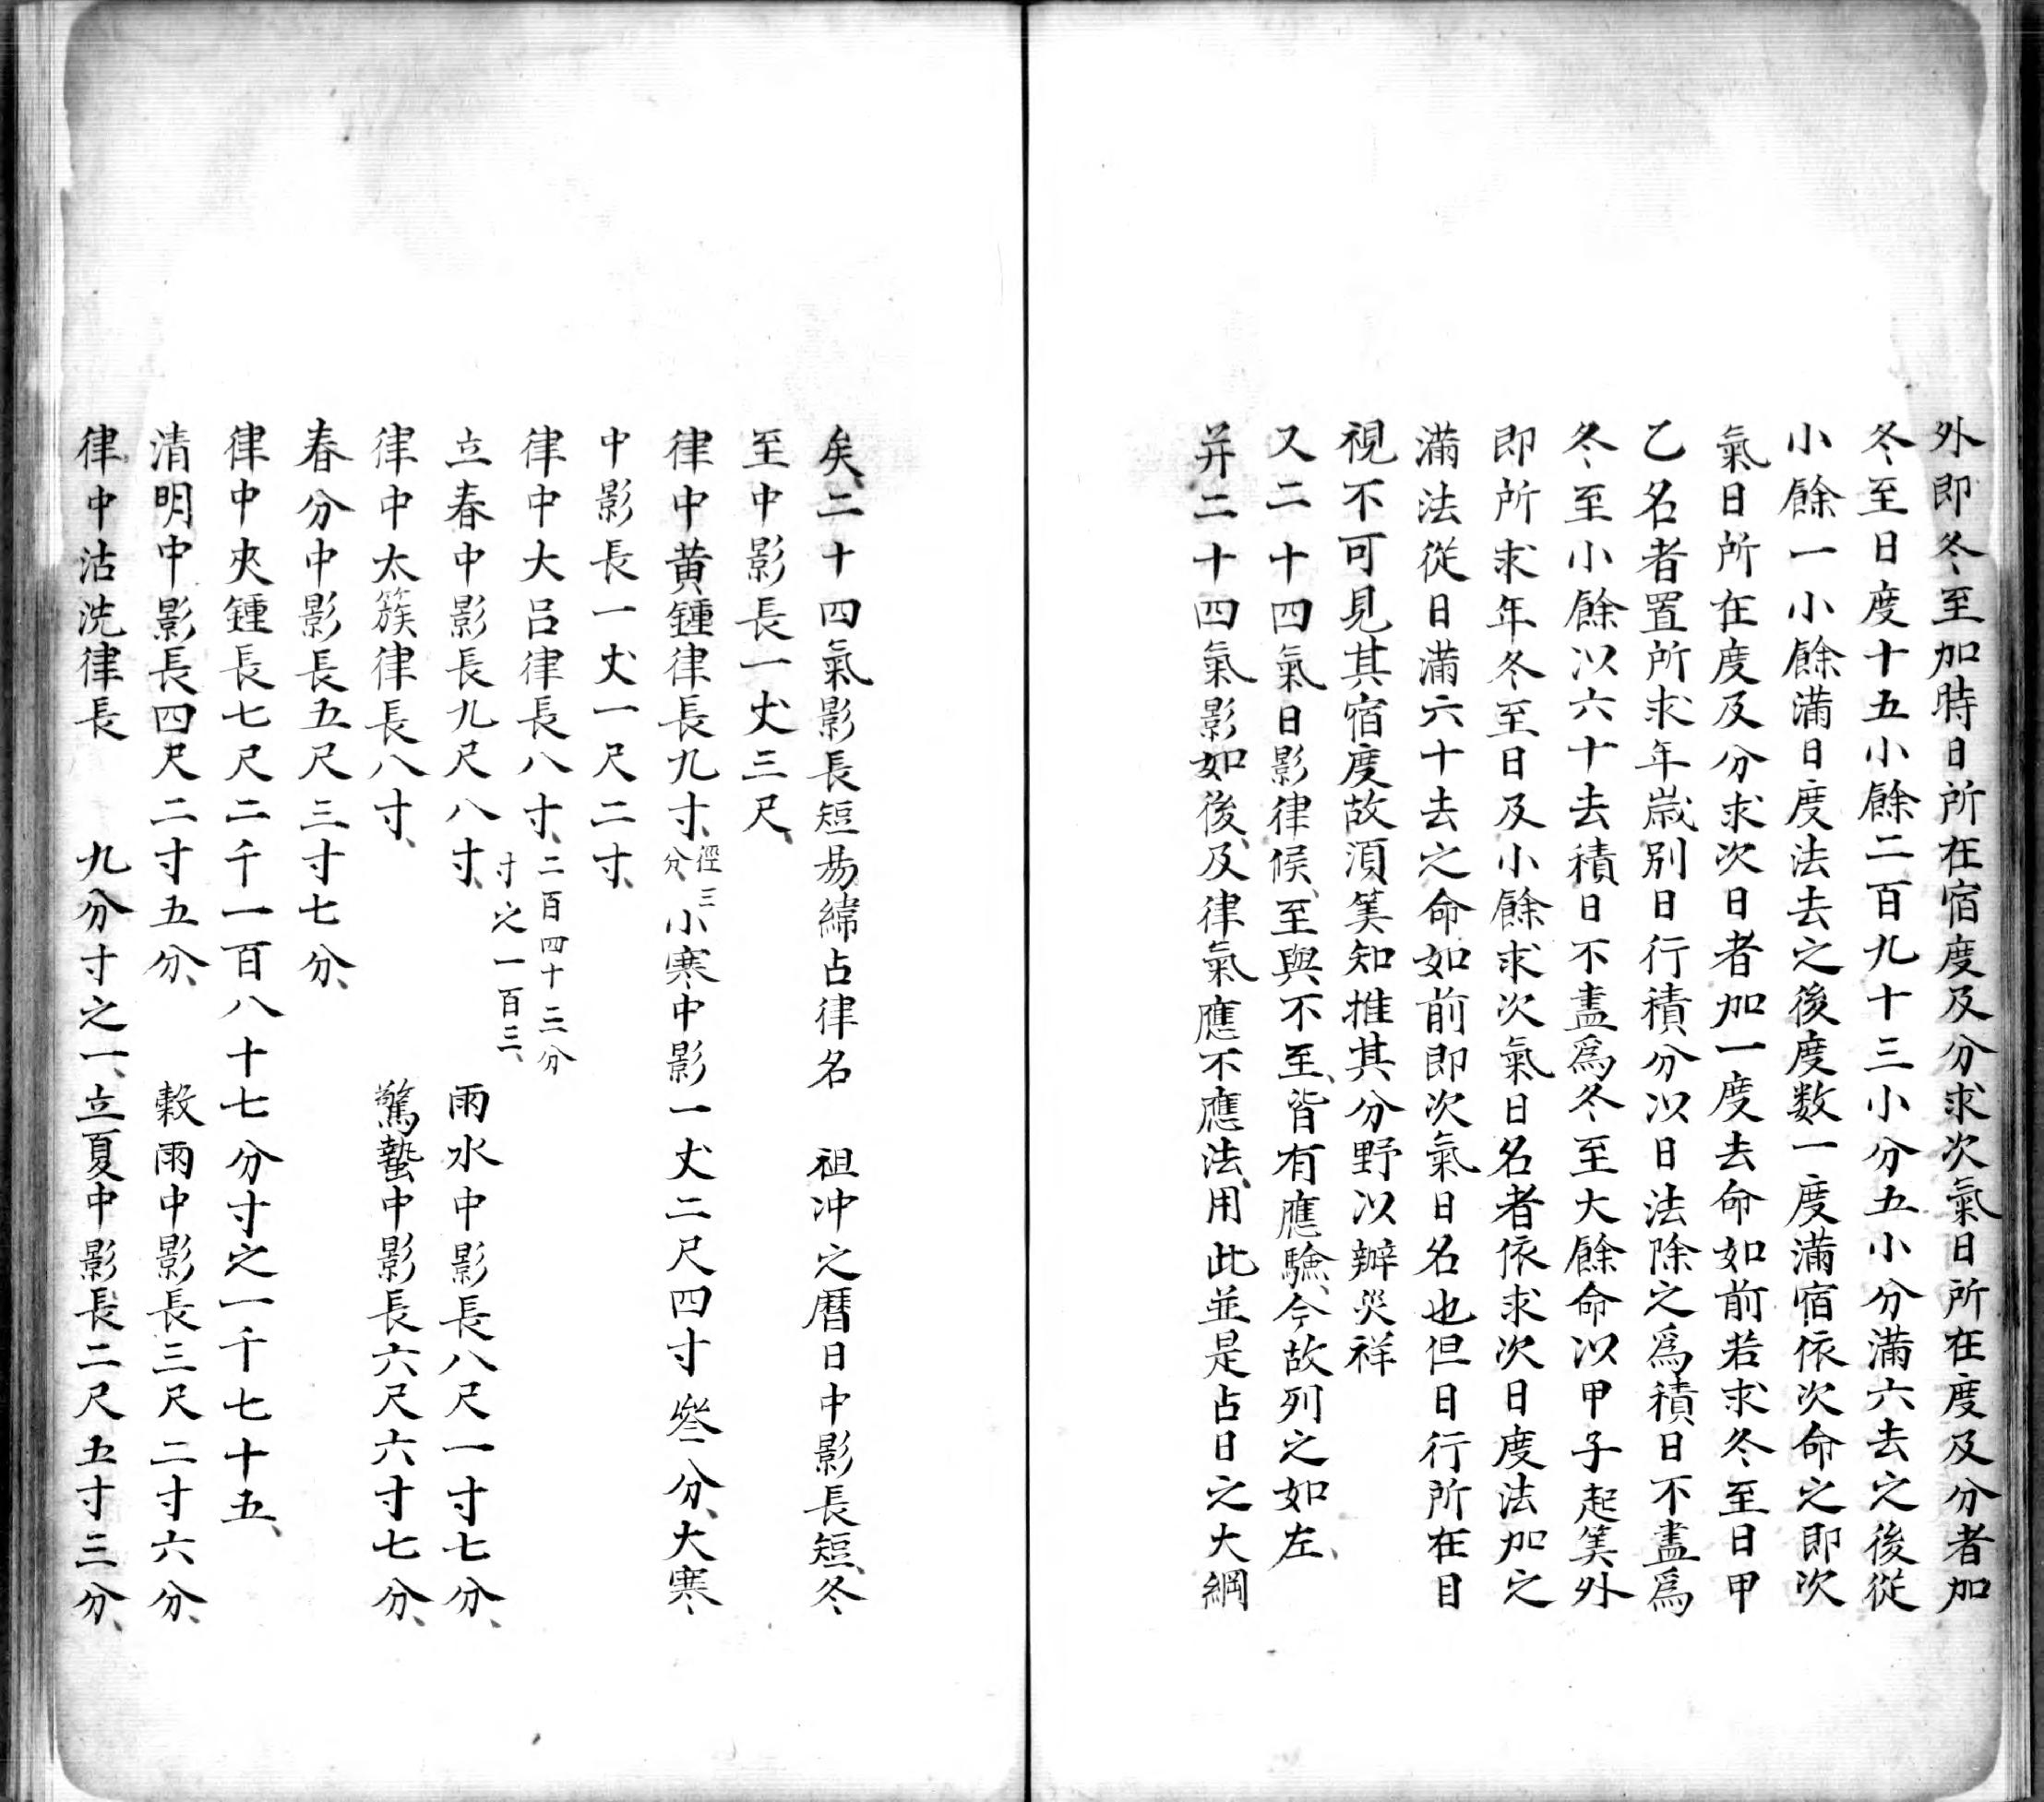 外即冬至加時日所在宿度及分求次氣日所在度及分者加
冬至日度十五小餘二百九十三小分五小分滿六去之後從
小餘一小餘滿日度法去之後度数一度滿宿依次命之即次
氣日所在度及分求次日者加一度去命如前若求冬至日甲
乙名者置所求年嵗別日行積分以日法除之爲積日不盡爲
冬至小餘以六十去積日不盡爲冬至大餘命以甲子起筭外
即所求年冬至日及小餘求次氣日名者依求次日度法加之
滿法從日滿六十去之命如前即次氣日名也但日行所在目
視不可見其宿度故湏筭知推其分野以辧災祥
又二十四氣日影律候、至與不至、皆有應驗、今故列之如左、
并二十四氣影如後、及律氣應不應法、用此並是占日之大綱
矣、二十四氣影長短昜緯占律名　祖冲之暦日中影長短、冬
至中影長一丈三尺、
律中黄鍾律長九寸、徑三分、小寒中影一丈二尺四寸叁分、大寒
中影長一丈一尺二寸、
律中大吕律長八寸、二百四十三分寸之一百三、
立春中影長九尺八寸、　雨水中影長八尺一寸七分、
律中太簇律長八寸、　驚蟄中影長六尺六寸七分、
春分中影長五尺三寸七分、
律中夾鍾長七尺二千一百八十七分寸之一千七十五、
清明中影長四尺二寸五分、　穀雨中影長三尺二寸六分、
律中沽洗律長　九分寸之一、立夏中影長二尺五寸三分、